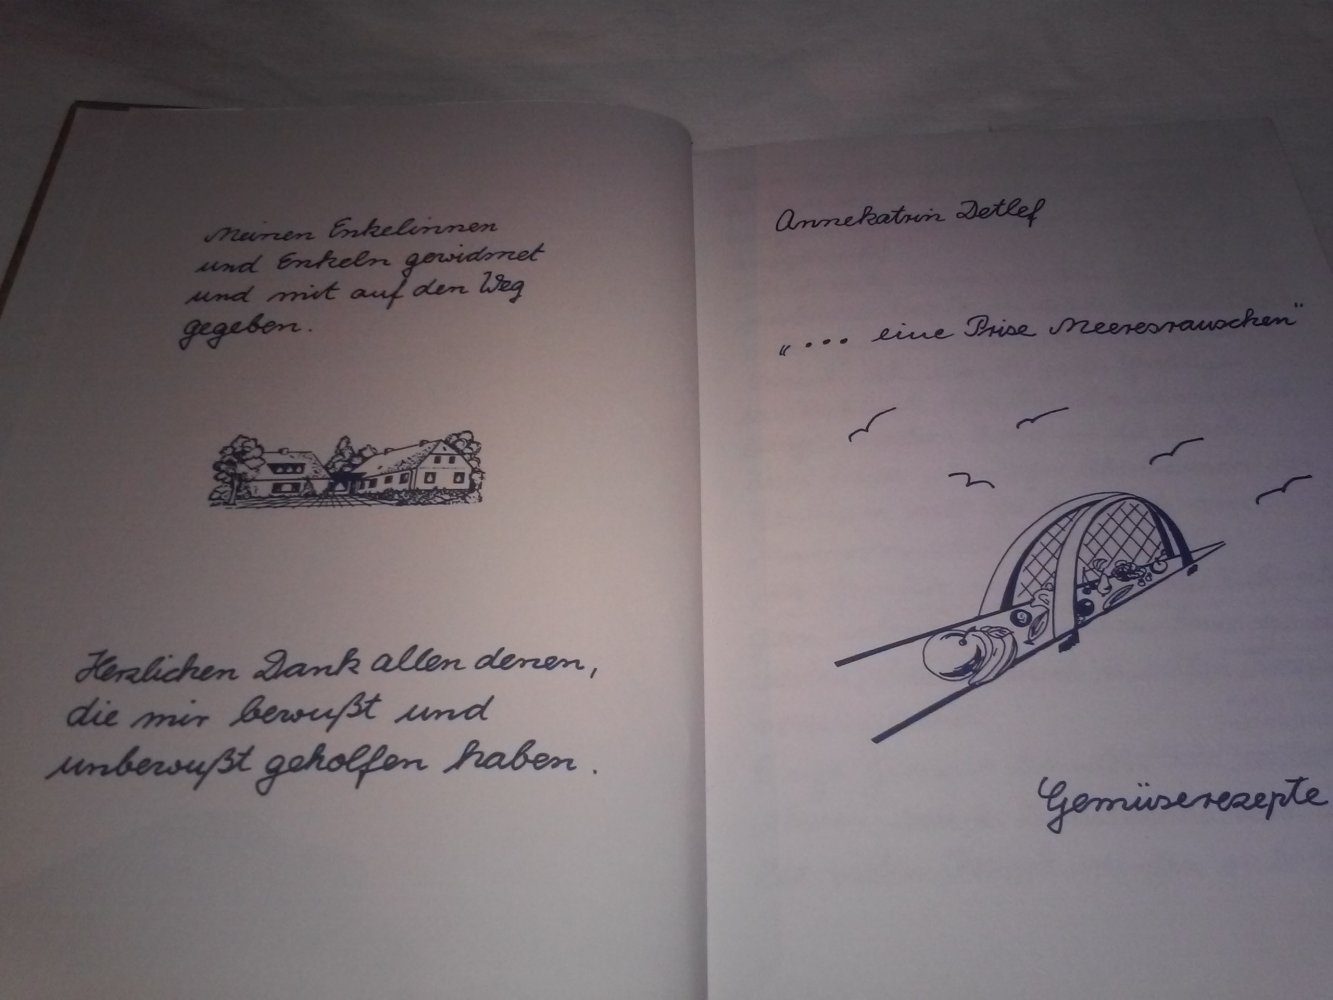 Meinen Enkelinnen
und Enkeln gewidmet
und mit auf den Weg
gegeben.
Herzlichen Dank allen denen,
die mir bewußt und
unbewußt geholfen haben.
Annekatrin Detlef
„... eine Prise Meeresrauschen"
Gemüserezepte